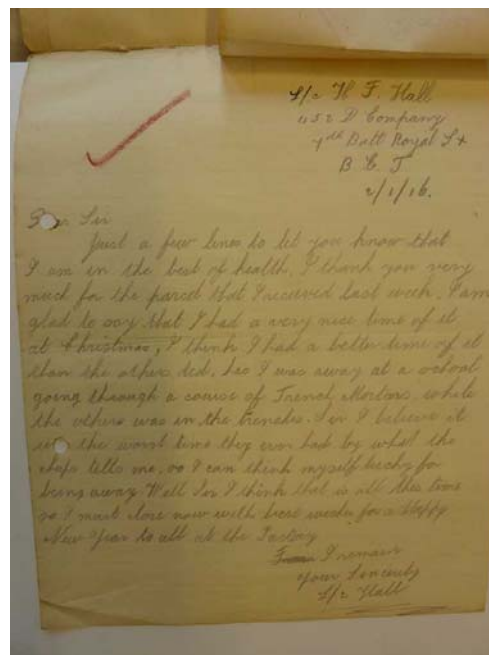 L/c H F Hall
452 D Company
4th Batt Royal Sx
B. E. F
2/1/16.
Dear Sir
Just a few lines to let you know that
I am in the best of health. I thank you very
much for the parcel that I received last week. I am
glad to say that I had a very nice time of it
at Christmas, I think I had a better time of it
than the others did, has I was away at a school
going through a course of Trench Mortars, while
the others was in the trenches. Sir I believe it
was the worst time they ever had by what the
chaps tells me, so I can think myself lucky for
being away. Well Sir I think that is all this time
so I must close now with best wishes for a Happy
New Year to all at the Factory
I remain
Your Sincerely
L/c Hall